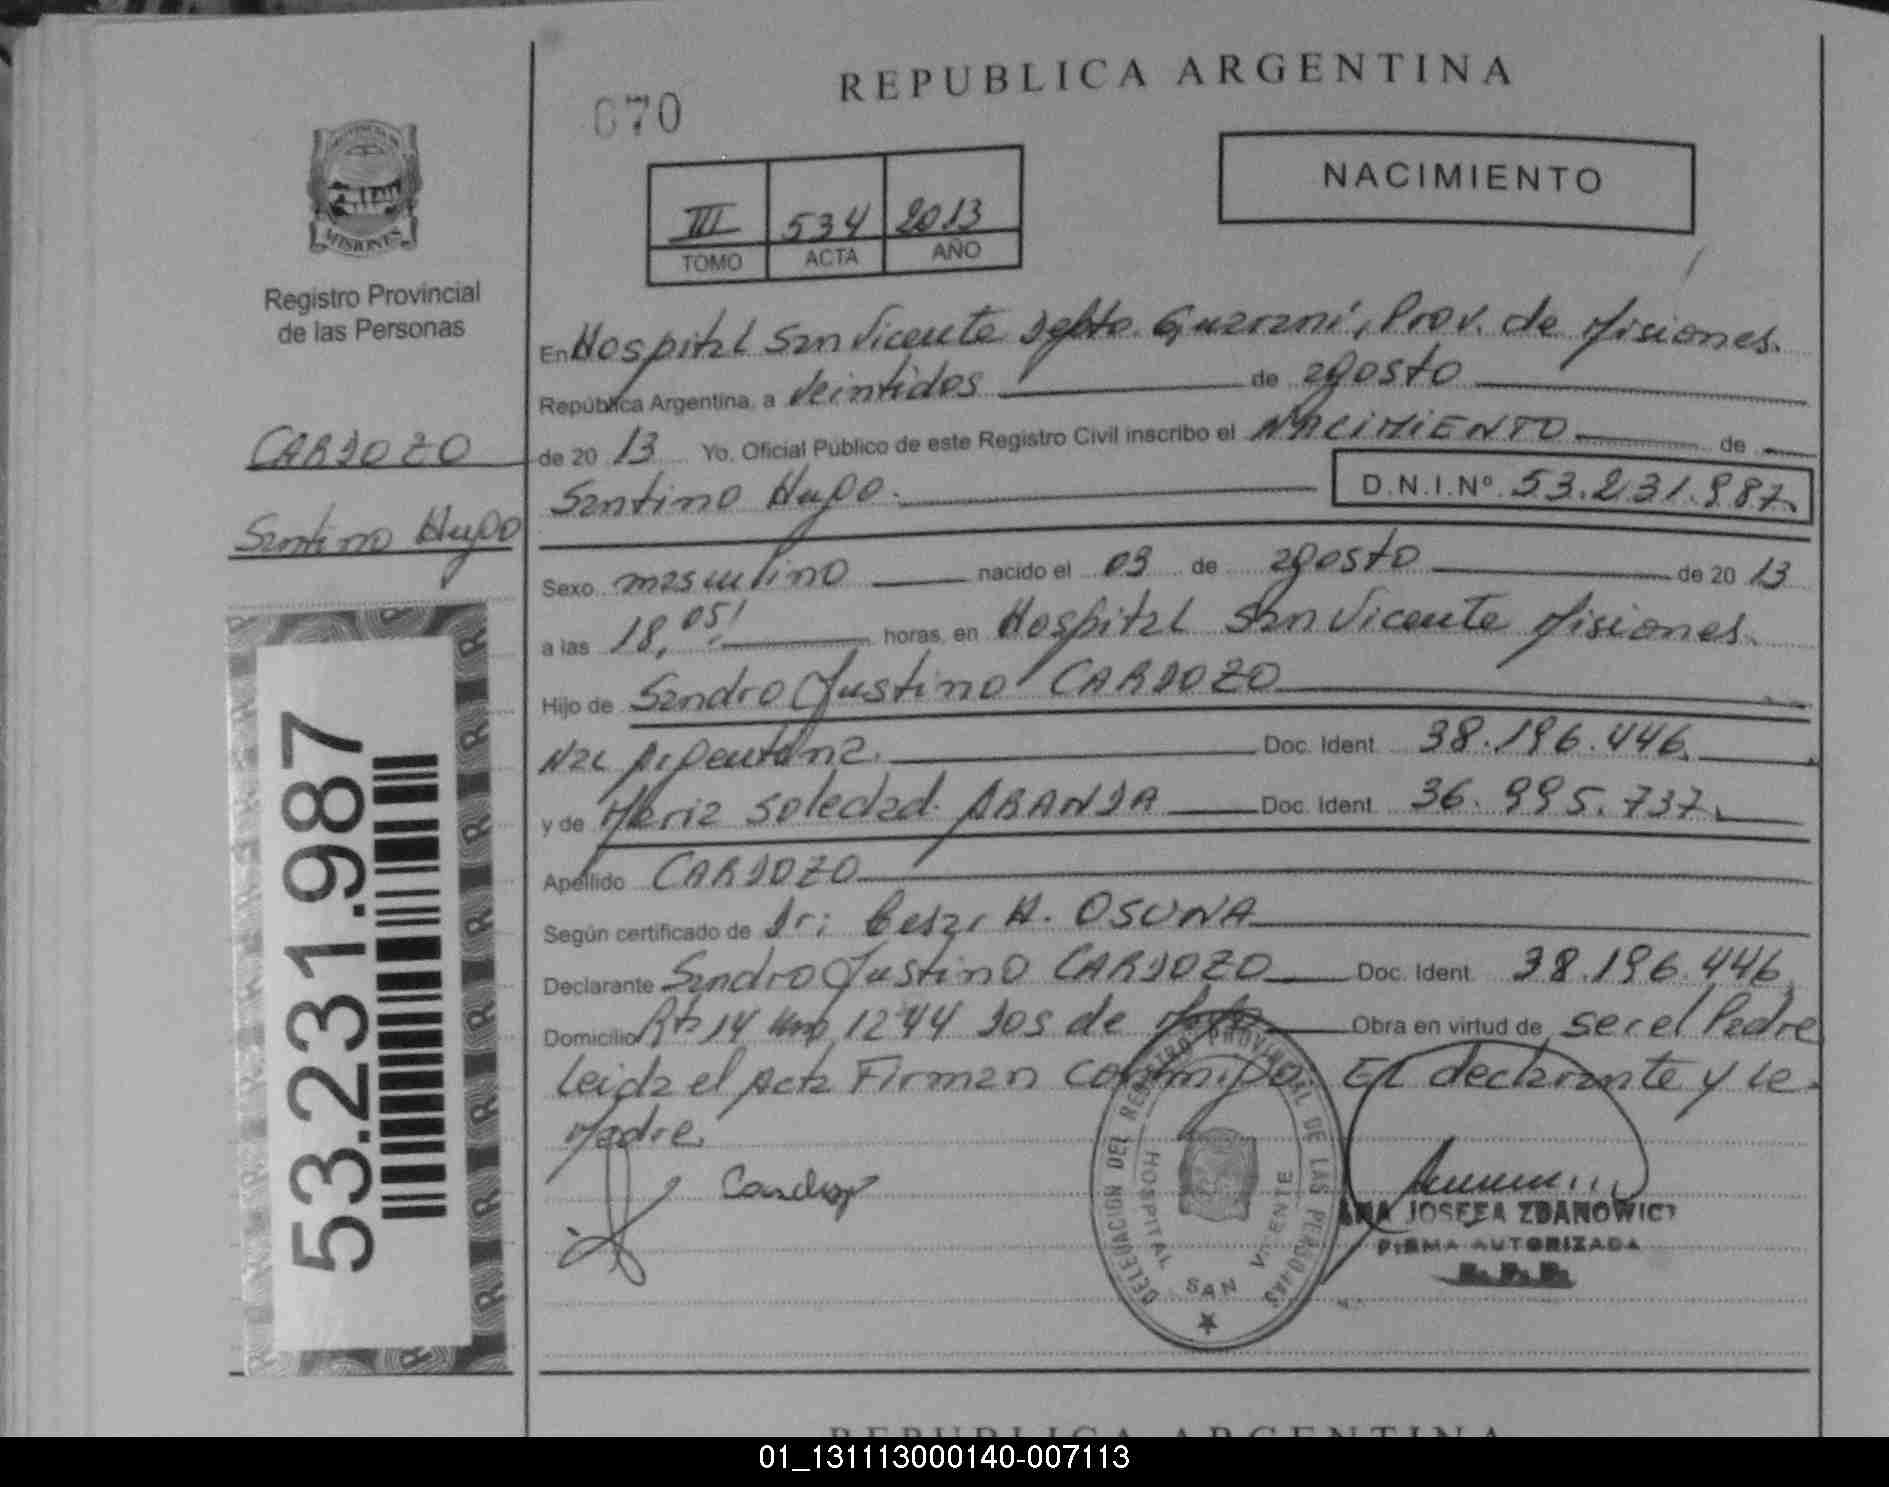 REPUBLICA ARGENTINA
670
NACIMIENTO
III 534 2013
TOMO ACTA AÑO
MISIONES
Registro Provincial
de las Personas
CARDOZO
Santino Hugo
53.231.987
En Hospital San Vicente Dpto. Guaraní, Prov. de Misiones.
República Argentina, a veintidos de agosto
de 20 13 Yo, Oficial Público de este Registro Civil inscribo el NACIMIENTO de
Santino Hugo. D.N.I.Nº 53.231.987.
Sexo masculino nacido el 03 de agosto de 20 13
a las 18,05! horas, en Hospital San Vicente Misiones.
Hijo de Sandro Justino CARDOZO
Nac Argentina. Doc. Ident. 38.196.446.
y de Maria Soledad ARANDA Doc. Ident. 36.995.737.
Apellido CARDOZO
Según certificado de Dr: Cesar A. OSUNA
Declarante Sandro Justino CARDOZO Doc. Ident. 38.196.446
Domicilio Rta 14 km 1244 Dos de Mayo Obra en virtud de ser el Padre
Leida el Acta Firman conmigo, El declarante y la
Madre.
DELEGACION DEL REGISTRO PROVINCIAL DE LAS PERSONAS
HOSPITAL SAN VICENTE
ANA JOSEFA ZDANOWICZ
FIRMA AUTORIZADA
REPUBLICA ARGENTINA
01_131113000140-007113